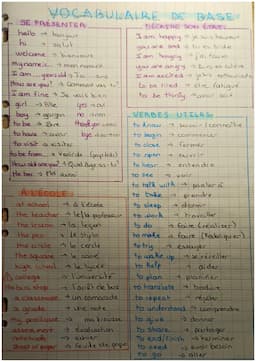 VOCABULAIRE DE BASE
SE PRÉSENTER
hello → bonjour
hi → salut
welcome → bienvenue
my name is →
I am years old → J'ai ans
How are you? → Comment vas-tu?
I am fine → Je vais bien
girl → fille
yes → oui
boy → garçon
no → non
to be → être
to have → avoir
to visit → visiter
to be from → venir de
How old are you? → Quel âge as-tu?
DÉCRIRE SON ÉTAT
I am happy → je suis heureux
you are sad → tu es triste
I am hungry → j'ai faim
you are angry → tu es en colère
I am excited → je suis enthousiaste
to be tired → être fatigué
to be thirsty → avoir soif
À L'ÉCOLE
at school → à l'école
the teacher → le/la professeur
the lesson → la leçon
the pen → le stylo
the circle → le cercle
the square → le carré
high school → le lycée
college → l'université
the bus stop → l'arrêt de bus
a classmate → un camarade
a grade → une note
assessment → évaluation
notebook → cahier
sheet of paper → feuille de papier
VERBES UTILES
to know → savoir / connaître
to begin → commencer
to close → fermer
to open → ouvrir
to hear → entendre
to see → voir
to talk with → parler à
to take → prendre
to sleep → dormir
to work → travailler
to do → faire (réaliser)
to make → faire (fabriquer)
to try → essayer
to wake up → se réveiller
to help → aider
to plan → planifier
to translate → traduire
to repeat → répéter
to understand → comprendre
to give → donner
to share → partager
to end/finish → terminer
to need → avoir besoin
to go → aller